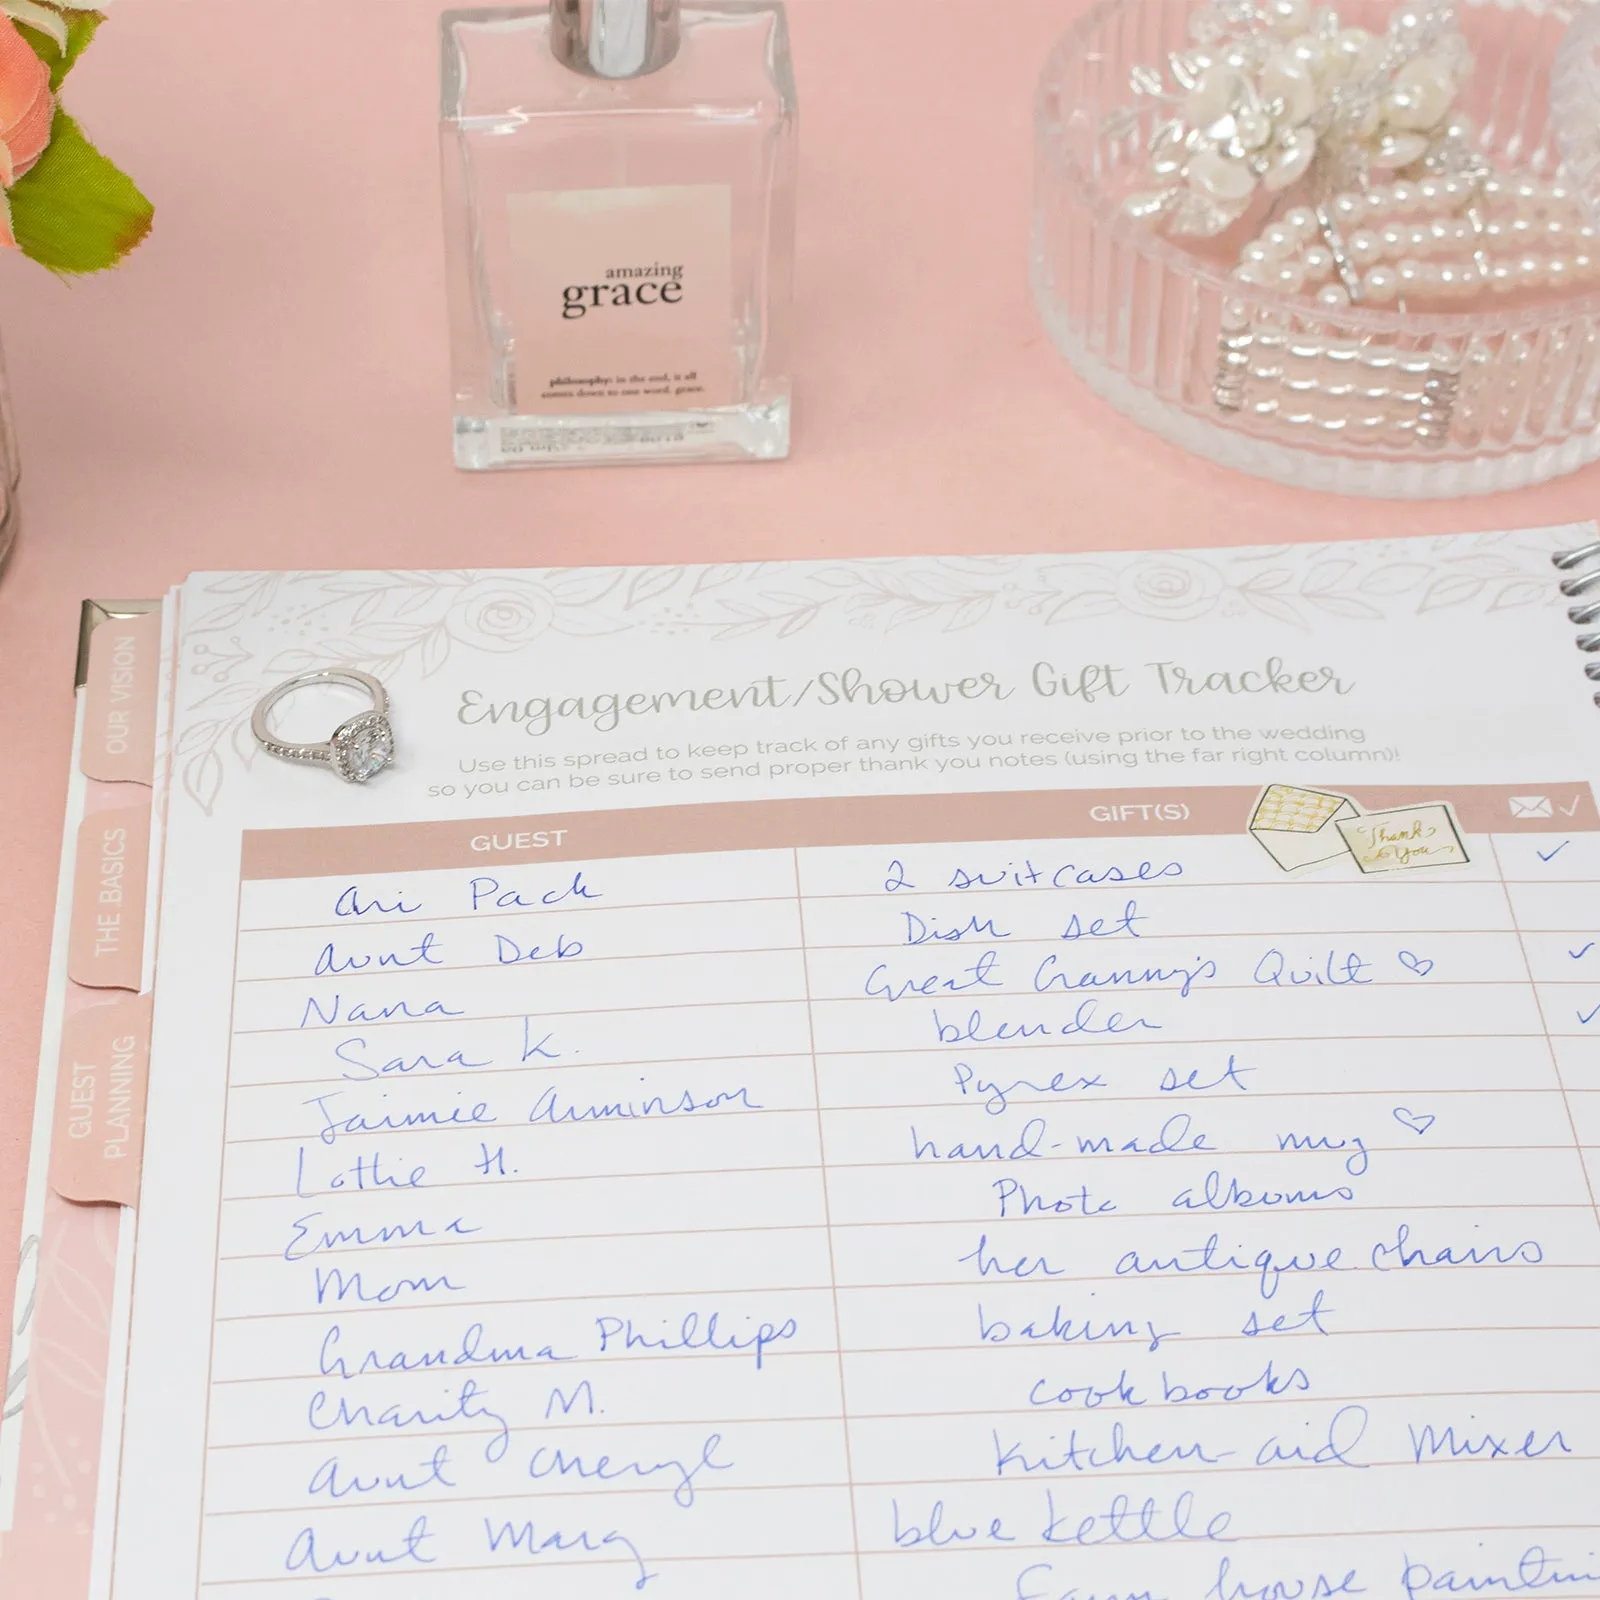 amazing
grace
philosophy: in the end, it all
comes down to one word. grace.
OUR VISION
THE BASICS
GUEST
PLANNING
Engagement/Shower Gift Tracker
Use this spread to keep track of any gifts you receive prior to the wedding
so you can be sure to send proper thank you notes (using the far right column)!
GUEST GIFT(S)
Thank
You
Ari Pack 2 suitcases ✓
Aunt Deb Dish set
Nana Great Granny's Quilt ♡ ✓
Sara K. blender ✓
Jaimie Arminson Pyrex set
Lottie H. hand-made mug ♡
Emma Photo albums
Mom her antique chairs
Grandma Phillips baking set
Charity M. cookbooks
Aunt Cheryl Kitchen-aid Mixer
Aunt Marg blue kettle
Farm house